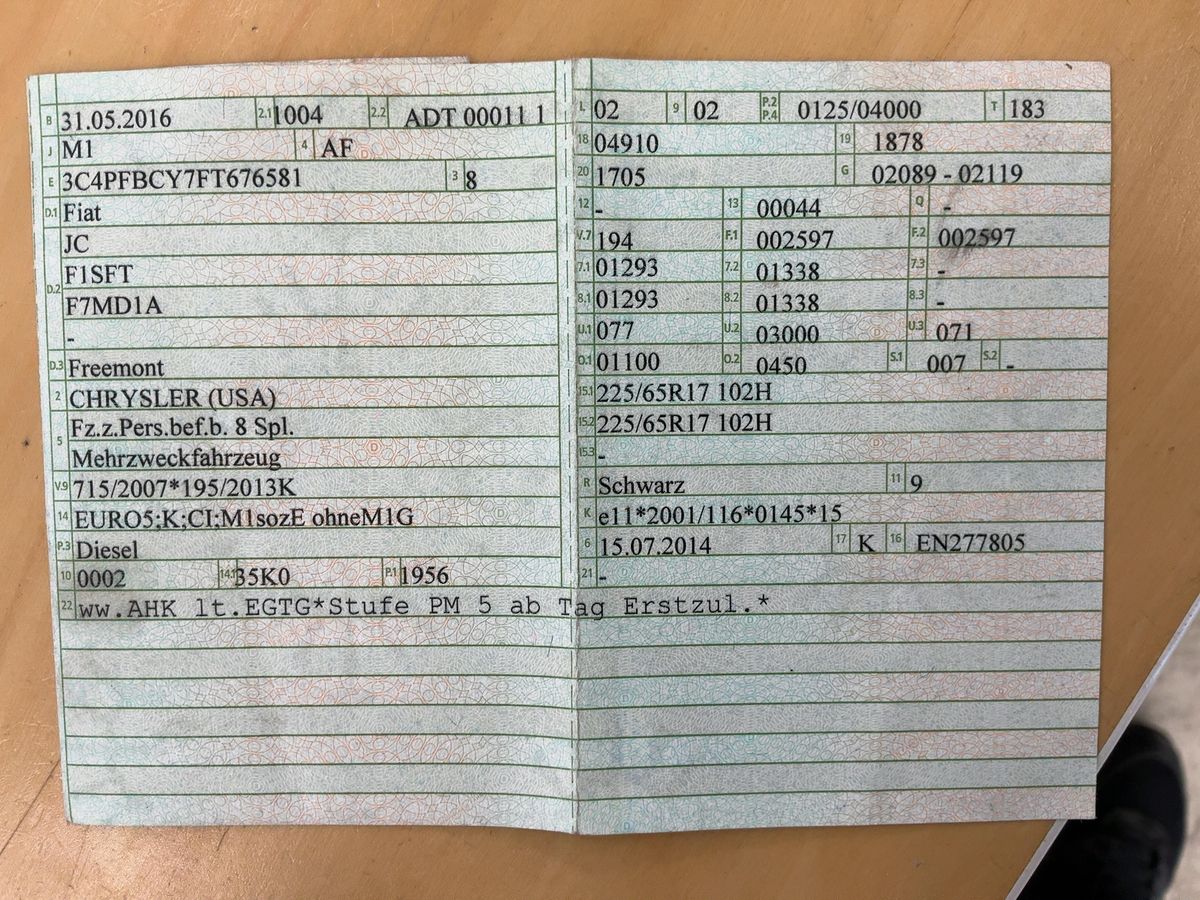 B 31.05.2016 2.1 1004 2.2 ADT 00011 1
J M1 4 AF
E 3C4PFBCY7FT676581 3 8
D.1 Fiat
JC
D.2 F1SFT
F7MD1A
-
D.3 Freemont
2 CHRYSLER (USA)
5 Fz.z.Pers.bef.b. 8 Spl.
Mehrzweckfahrzeug
V.9 715/2007*195/2013K
14 EURO5;K;CI;M1sozE ohneM1G
P.3 Diesel
10 0002 14.1 35K0 P.1 1956
22 ww.AHK lt.EGTG*Stufe PM 5 ab Tag Erstzul.*
L 02 9 02 P.2 P.4 0125/04000 T 183
18 04910 19 1878
20 1705 G 02089 - 02119
12 - 13 00044 Q -
V.7 194 F.1 002597 F.2 002597
7.1 01293 7.2 01338 7.3 -
8.1 01293 8.2 01338 8.3 -
U.1 077 U.2 03000 U.3 071
O.1 01100 O.2 0450 S.1 007 S.2 -
15.1 225/65R17 102H
15.2 225/65R17 102H
15.3 -
R Schwarz 11 9
K e11*2001/116*0145*15
6 15.07.2014 17 K 16 EN277805
21 -